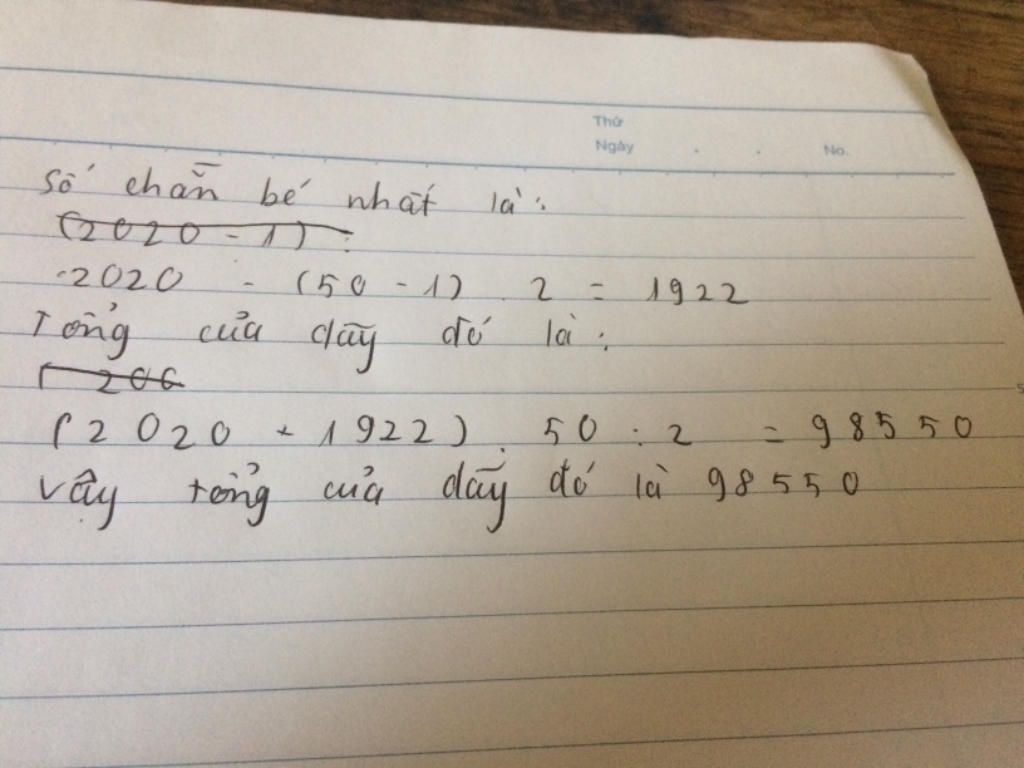 Thứ
Ngày . . No.
Số chẵn bé nhất là:
(2020 - 1) :
2020 - (50 - 1) . 2 = 1922
Tổng của dãy đó là:
( 200
(2020 + 1922) . 50 : 2 = 98550
Vậy tổng của dãy đó là 98550